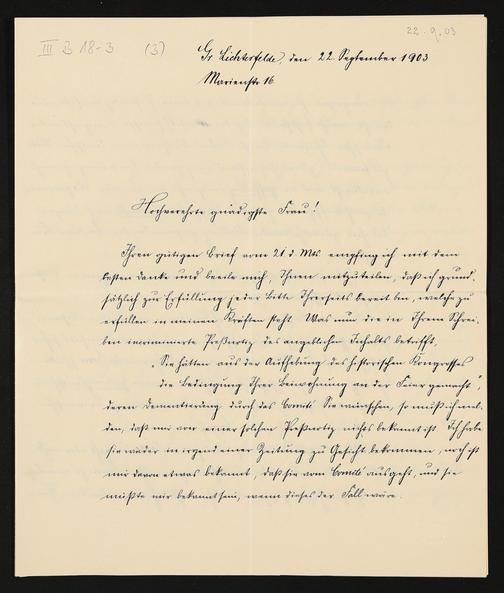 III B 18-3 (3)
22.9.03
Gr. Lichterfelde, den 22. September 1903
Marienstr 16
Hochverehrte gnädigste Frau!
Ihren gütigen Brief vom 21 d. Mts. empfing ich mit dem
besten Danke und beeile mich, Ihnen mitzuteilen, daß ich grund-
sätzlich zur Erfüllung jeder Bitte Ihrerseits bereit bin, welche zu
erfüllen in meinen Kräften steht. Was nun die in Ihrem Schrei-
ben incriminierte Preßnotiz des angeblichen Inhalts betrifft,
„Sie hätten aus der Aufhebung des historischen Kongresses
die Bedingung Ihrer Beiwohnung an der Feier gemacht",
deren Dementierung durch das Comité Sie wünschen, so muß ich mel-
den, daß mir von einer solchen Preßnotiz nichts bekannt ist. Ich habe
sie weder in irgend einer Zeitung zu Gesicht bekommen, noch ist
mir davon etwas bekannt, daß sie vom Comité ausgeht, und sie
müßte mir bekannt sein, wenn dieses der Fall wäre.